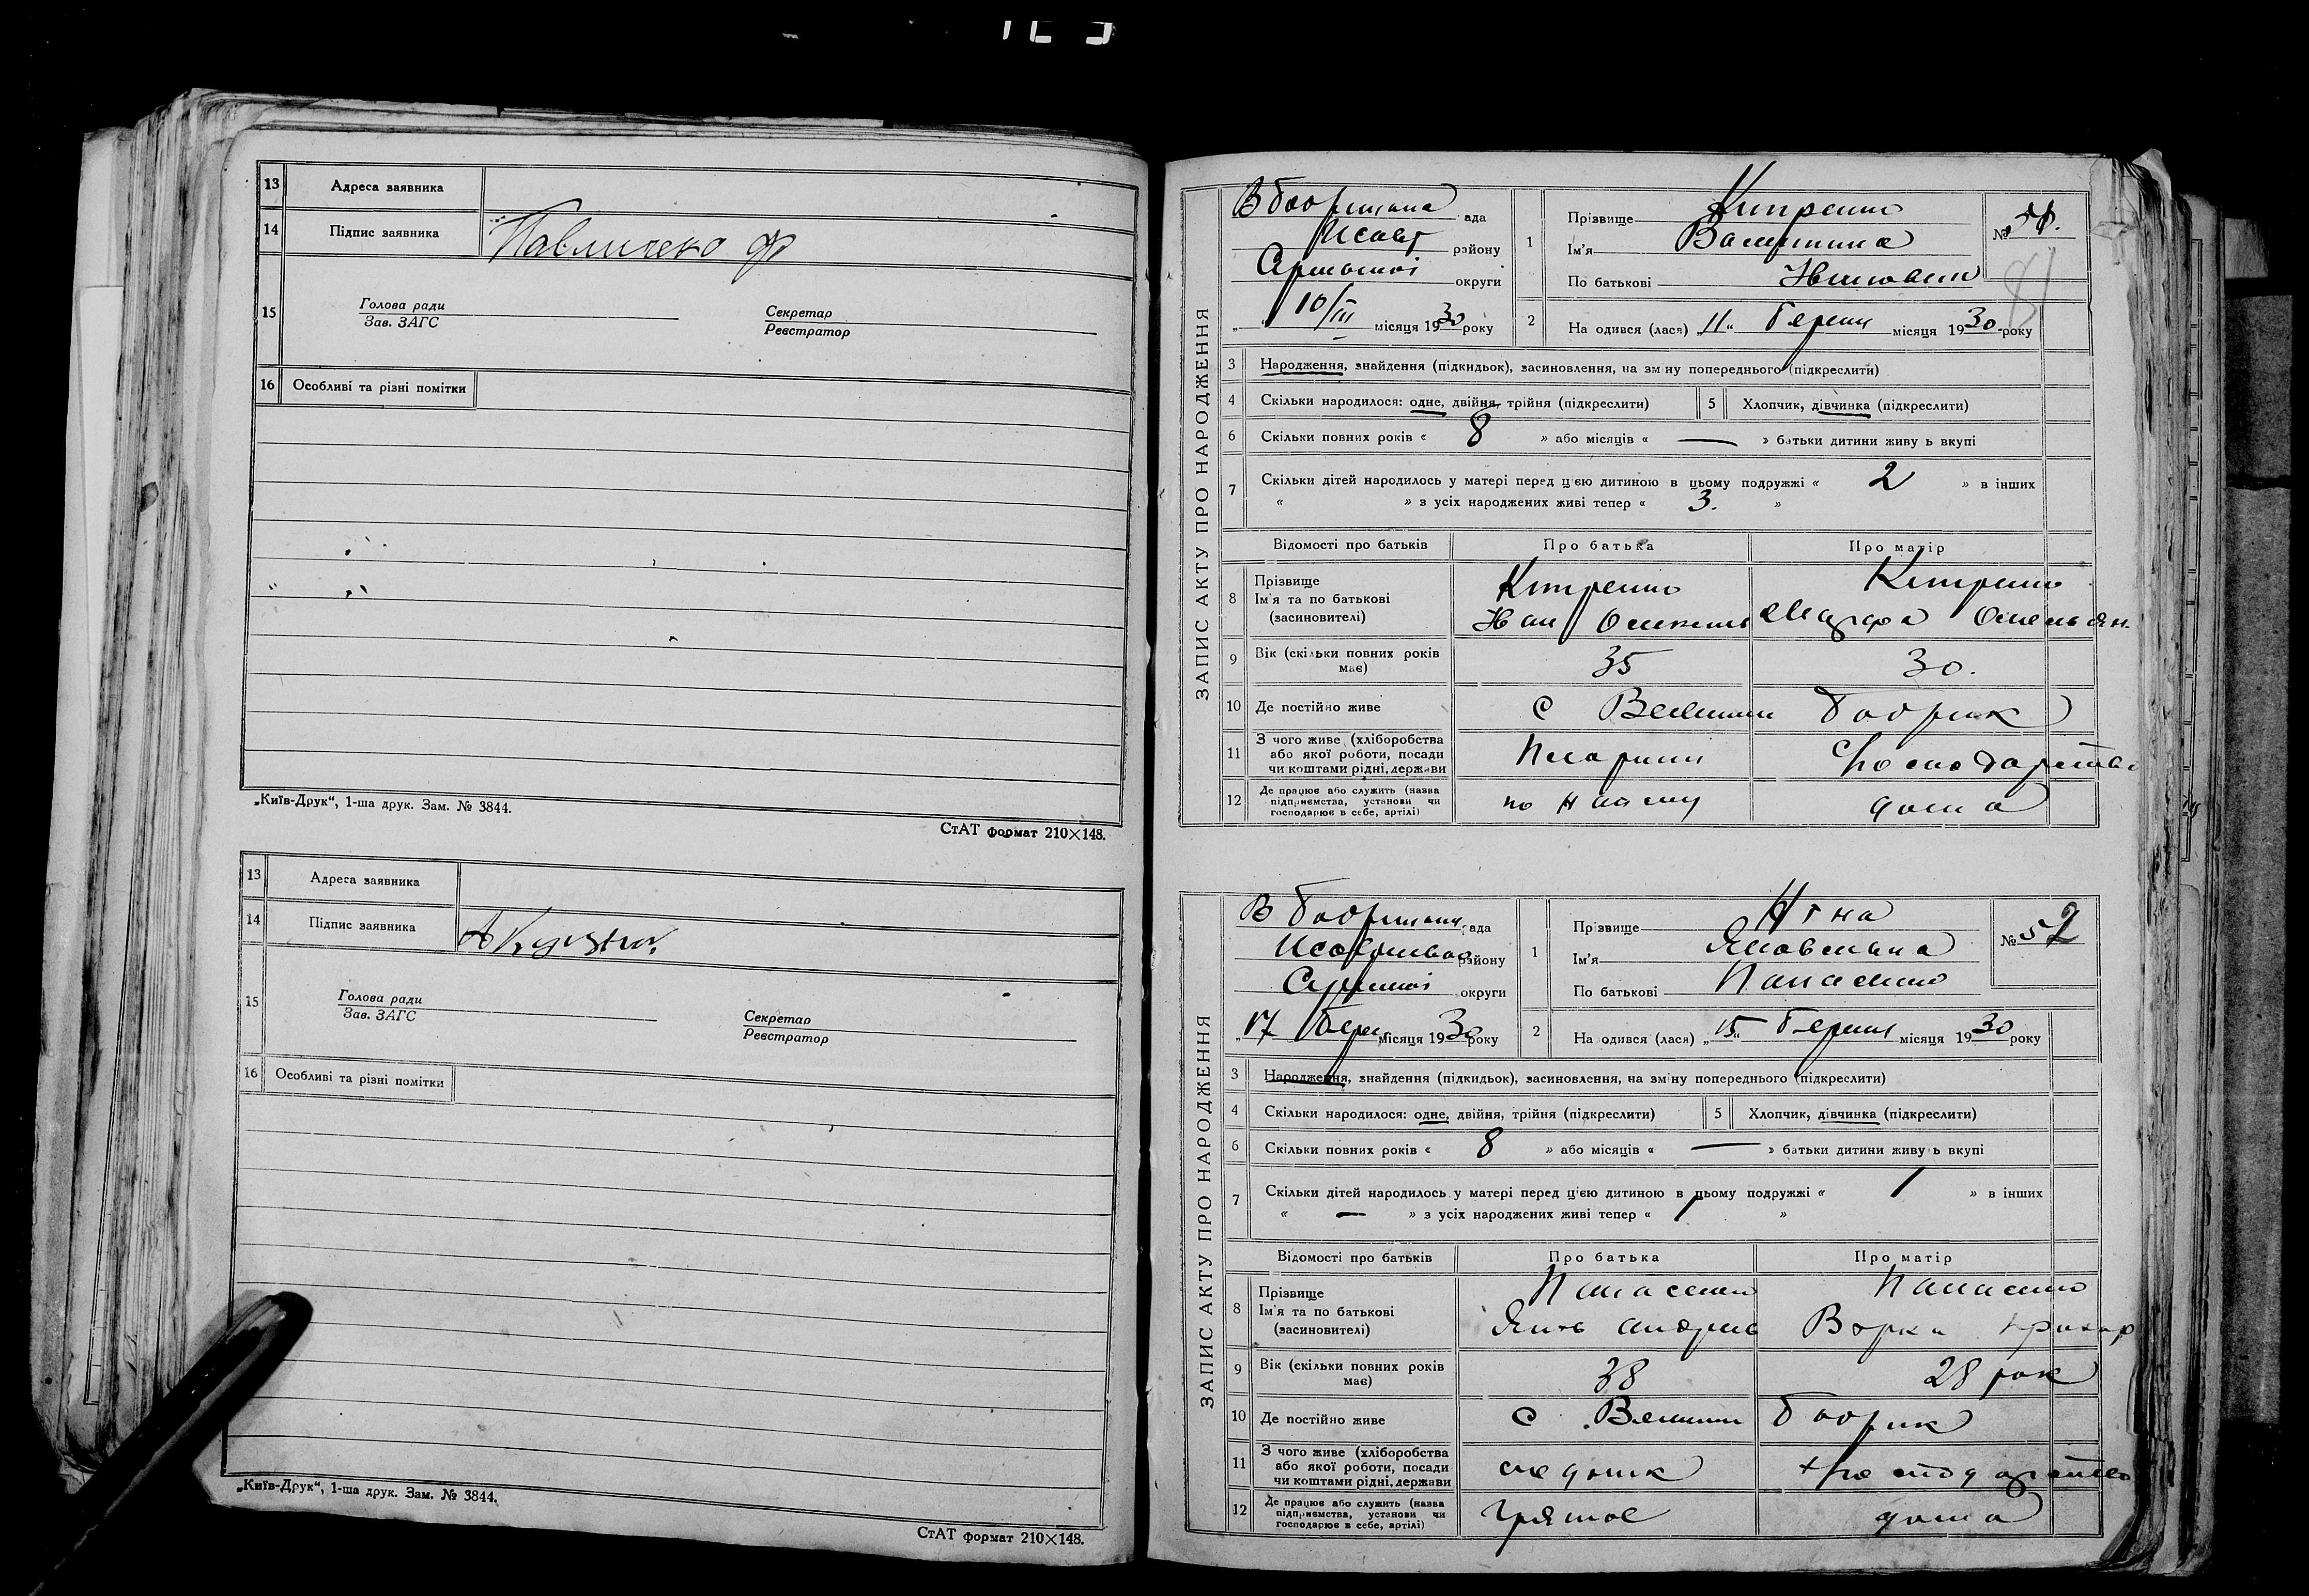 13 Адреса заявника
14 Підпис заявника Павличенко Ф
15 Голова ради Секретар
Зав. ЗАГС Реєстратор
16 Особливі та різні помітки
„Київ-Друк“, 1-ша друк. Зам. № 3844.
СтАТ формат 210×148.
13 Адреса заявника
14 Підпис заявника
15 Голова ради Секретар
Зав. ЗАГС Реєстратор
16 Особливі та різні помітки
„Київ-Друк“, 1-ша друк. Зам. № 3844.
СтАТ формат 210×148.
ЗАПИС АКТУ ПРО НАРОДЖЕННЯ
ада
району
округи
10/III місяця 1930 року
1 Прізвище
Ім'я Валентина
По батькові
№
81
2 На одився (лася) „11“ березн місяця 1930 року
3 Народження, знайдення (підкидьок), засиновлення, на зміну попереднього (підкреслити)
4 Скільки народилося: одне, двійня, трійня (підкреслити) 5 Хлопчик, дівчинка (підкреслити)
6 Скільки повних років « 8 » або місяців « — » батьки дитини живу ь вкупі
7 Скільки дітей народилось у матері перед цією дитиною в цьому подружжі « 2 » в інших
« » з усіх народжених живі тепер « 3. »
Відомості про батьків Про батька Про матір
8 Прізвище
Ім'я та по батькові Іван Марфа Омельян.
(засиновителі)
9 Вік (скільки повних років має) 35 30.
10 Де постійно живе с Велики Бобрик
11 З чого живе (хліборобства або якої роботи, посади чи коштами рідні, держави Господарство
12 Де працює або служить (назва підприємства, установи чи господарює в себе, артілі) по найму дома
ЗАПИС АКТУ ПРО НАРОДЖЕННЯ
ада
району
округи
„17 Берез місяця 1930 року
1 Прізвище Ніна
Ім'я Яковлевна
По батькові Панасенко
№ 52
2 На одився (лася) „15“ березня місяця 1930 року
3 Народження, знайдення (підкидьок), засиновлення, на зміну попереднього (підкреслити)
4 Скільки народилося: одне, двійня, трійня (підкреслити) 5 Хлопчик, дівчинка (підкреслити)
6 Скільки повних років « 8 » або місяців « — » батьки дитини живу ь вкупі
7 Скільки дітей народилось у матері перед цією дитиною в цьому подружжі « 1 » в інших
« — » з усіх народжених живі тепер « 1 »
Відомості про батьків Про батька Про матір
8 Прізвище Панасенко Панасенко
Ім'я та по батькові Яков Андрієв Варка
(засиновителі)
9 Вік (скільки повних років має) 38 28 рок
10 Де постійно живе с Велики Бобрик
11 З чого живе (хліборобства або якої роботи, посади чи коштами рідні, держави Господарство
12 Де працює або служить (назва підприємства, установи чи господарює в себе, артілі) дома